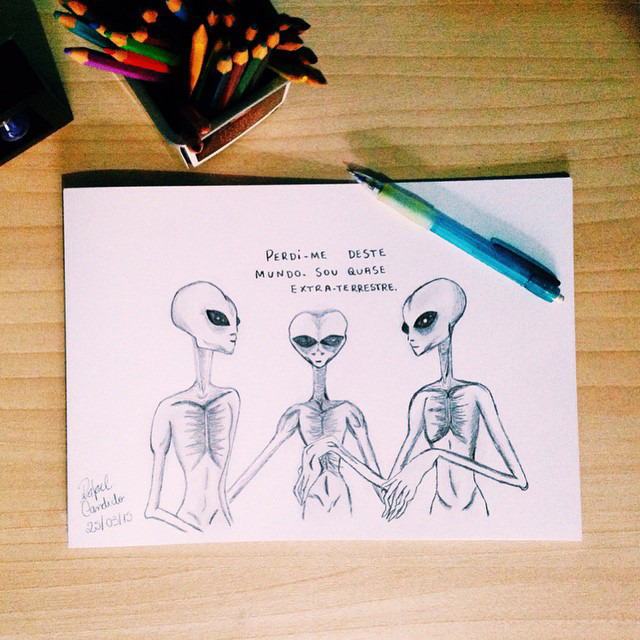 PERDI-ME DESTE
MUNDO. SOU QUASE
EXTRA-TERRESTRE.
Rafael
Candido